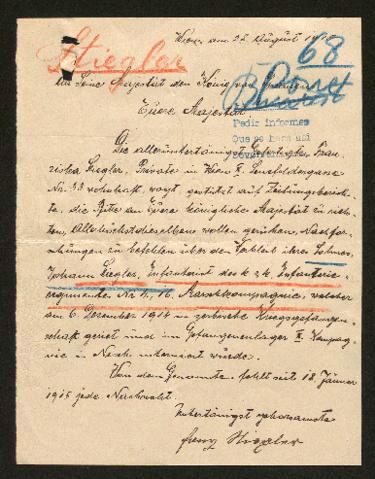 Stiegler
Wien am 27. August
68
An Seine Majestät den König von Spanien
Euere Majestät!
Pedir informes
Que se hara asi
Die alleruntertänigst Gefertigte Fran-
ziska Siegler, Private in Wien X.
Nr. 33 wohnhaft, wagt gestützt auf Zeitungsberich-
te, die Bitte an Euere königliche Majestät zu rich-
ten, Allerhöchstdieselben wollen geruhen, Nachfor-
schungen zu befehlen über den Verbleib ihres Sohnes,
Johann Siegler, Infanterist des k. u. k. Infanterie-
regimentes Nr. 4, 16. Marschkompagnie, welcher
am 6. Dezember 1914 in serbische Kriegsgefangen-
schaft geriet und im Gefangenenlager X. Kompag-
nie in Nisch interniert wurde.
Von dem Genannten fehlt seit 18. Jänner
1915 jede Nachricht.
Untertänigst gehorsamste